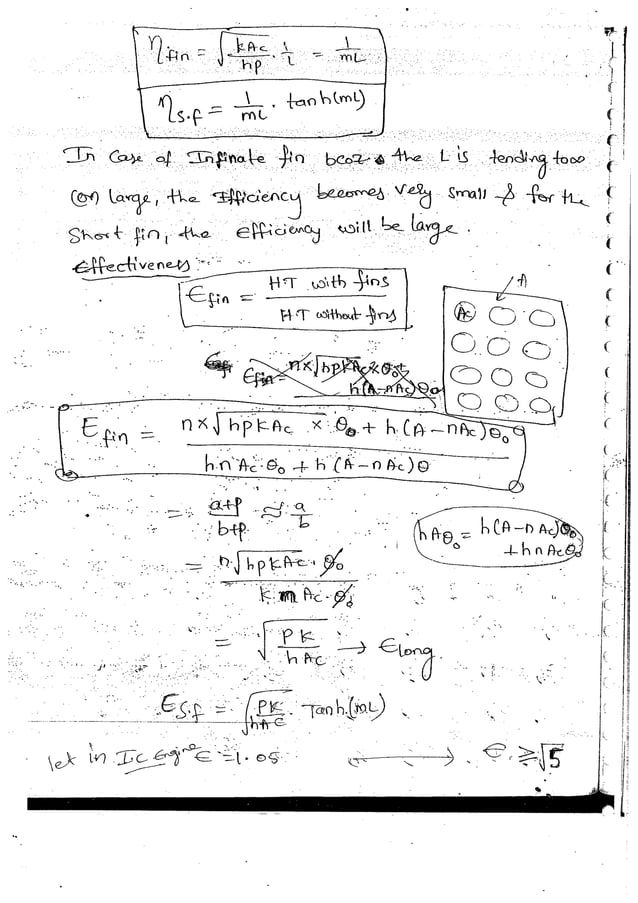 η_fin = √(kAc/hp) · 1/L = 1/mL
η_S.f = 1/mL · tanh(mL)
In Case of Infinate fin bcoz the L is tending to ∞
(or) large, the Efficiency becomes very small & for the
Short fin, the efficiency will be large.
Effectiveness
ε_fin = HT with fins / HT without fins
A
Ac
ε_fin = n×√hpkAc × θ₀ + / h(A-nAc)θ₀
ε_fin = n×√hpkAc × θ₀ + h(A-nAc)θ₀ / hnAc·θ₀ + h(A-nAc)θ
= a+p/b+p ≈ a/b
hAθ₀ = h(A-nAc)θ₀
+hnAcθ₀
= n√hpkAc · θ₀ / k n Ac·θ₀
= √(PK/hAc) → ε_long
ε_S.f = √(PK/hAc) Tanh(mL)
let in Ic Engine ε=1.05 ⟷ ε ≥ √5